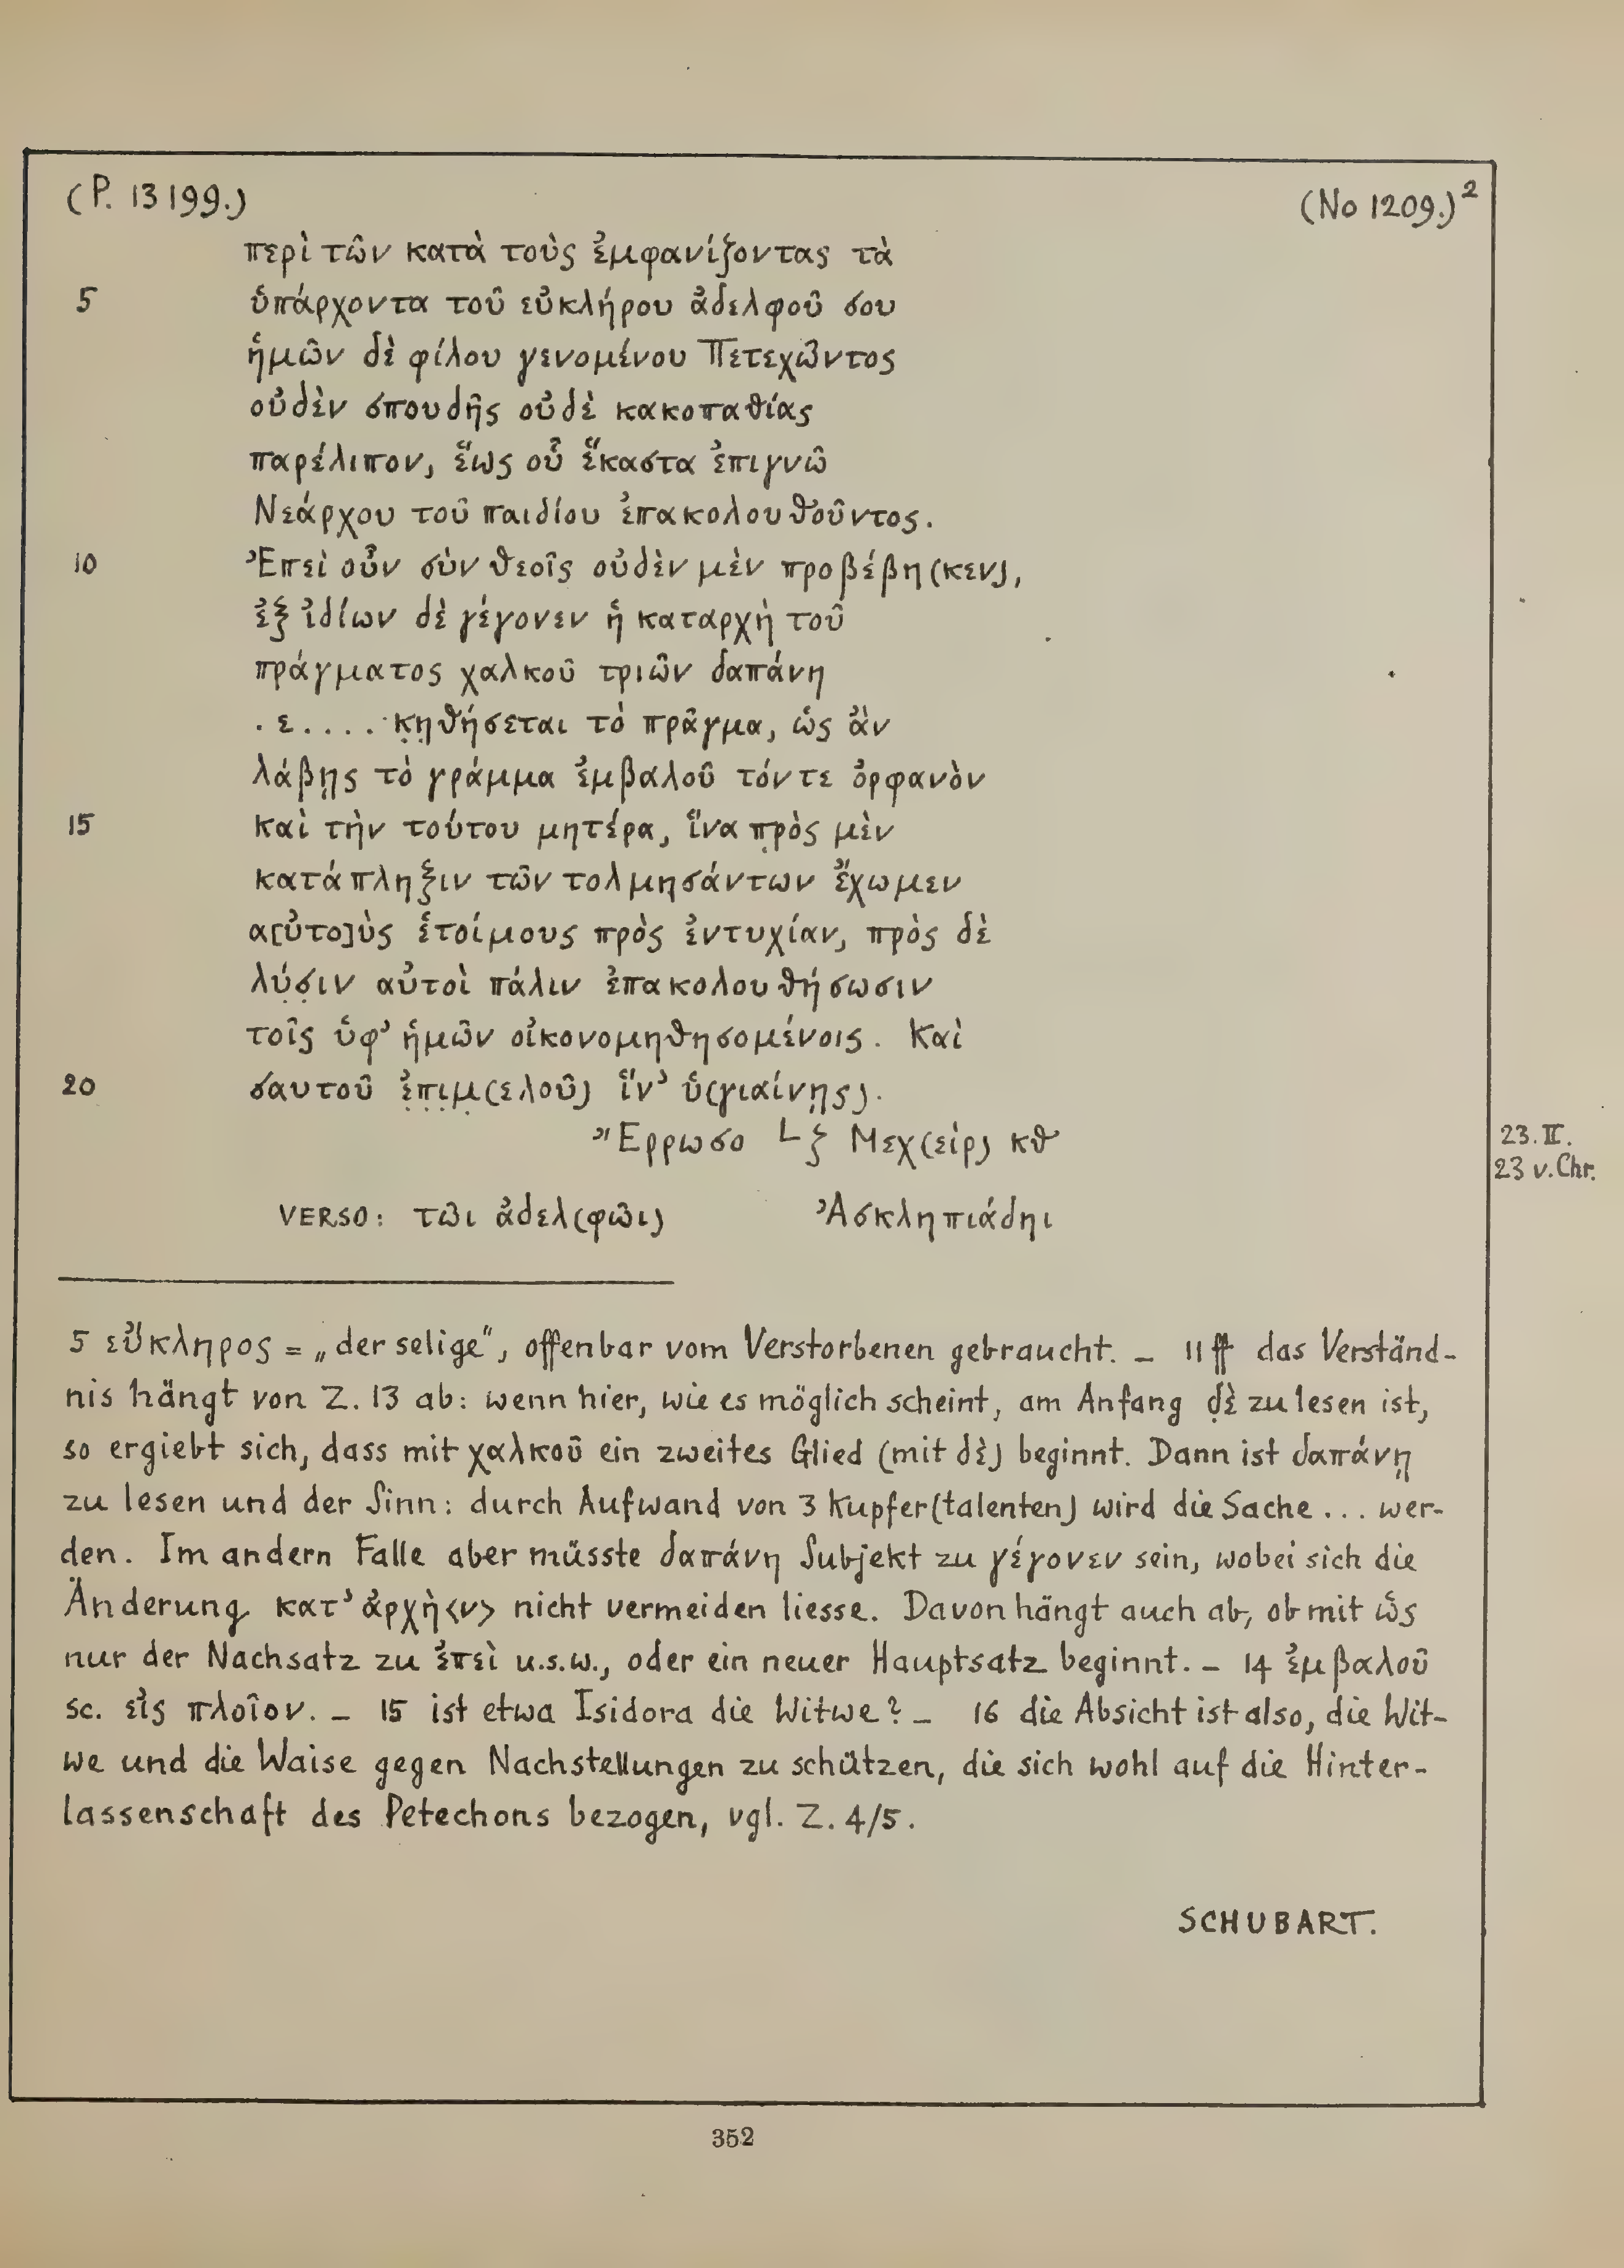 (P. 13199.) (No 1209.)²
περὶ τῶν κατὰ τοὺς ἐμφανίζοντας τὰ
5 ὑπάρχοντα τοῦ εὐκλήρου ἀδελφοῦ σου
ἡμῶν δὲ φίλου γενομένου Πετεχῶντος
οὐδὲν σπουδῆς οὐδὲ κακοπαθίας
παρέλιπον, ἕως οὗ ἕκαστα ἐπιγνῶ
Νεάρχου τοῦ παιδίου ἐπακολουθοῦντος.
10 Ἐπεὶ οὖν σὺν θεοῖς οὐδὲν μὲν προβέβη(κεν),
ἐξ ἰδίων δὲ γέγονεν ἡ καταρχὴ τοῦ
πράγματος χαλκοῦ τριῶν δαπάνη
. ε . . . . κ̣η̣θήσεται τὸ πρᾶγμα, ὡς ἂν
λάβῃς τὸ γράμμα ἐμβαλοῦ τόν τε ὀρφανὸν
15 καὶ τὴν τούτου μητέρα, ἵνα π̣ρὸς μὲν
κατάπληξιν τῶν τολμησάντων ἔχωμεν
α[ὐτο]ὺς ἑτοίμους πρὸς ἐντυχίαν, πρὸς δὲ
λύ̣σ̣ιν αὐτοὶ πάλιν ἐπακολουθήσωσιν
τοῖς ὑφ’ ἡμῶν οἰκονομηθησομένοις. Καὶ
20 σαυτοῦ ἐ̣π̣ι̣μ̣(ελοῦ) ἵν’ ὑ(γιαίνῃς).
Ἔρρωσο L ζ Μεχ(εὶρ) κθ
23. II.
23 v. Chr.
VERSO: τῶι ἀδελ(φῶι) Ἀσκληπιάδηι
5 εὔκληρος = „der selige“, offenbar vom Verstorbenen gebraucht. – 11 ff das Verständ-
nis hängt von Z. 13 ab: wenn hier, wie es möglich scheint, am Anfang δ̣ὲ zu lesen ist,
so ergiebt sich, dass mit χαλκοῦ ein zweites Glied (mit δὲ) beginnt. Dann ist δαπάνῃ
zu lesen und der Sinn: durch Aufwand von 3 Kupfer(talenten) wird die Sache ... wer-
den. Im andern Falle aber müsste δαπάνη Subjekt zu γέγονεν sein, wobei sich die
Änderung κατ’ ἀρχὴ<ν> nicht vermeiden liesse. Davon hängt auch ab, ob mit ὡς
nur der Nachsatz zu ἐπεὶ u.s.w., oder ein neuer Hauptsatz beginnt. – 14 ἐμβαλοῦ
sc. εἰς πλοῖον. – 15 ist etwa Isidora die Witwe? – 16 die Absicht ist also, die Wit-
we und die Waise gegen Nachstellungen zu schützen, die sich wohl auf die Hinter-
lassenschaft des Petechons bezogen, vgl. Z. 4/5.
SCHUBART.
352